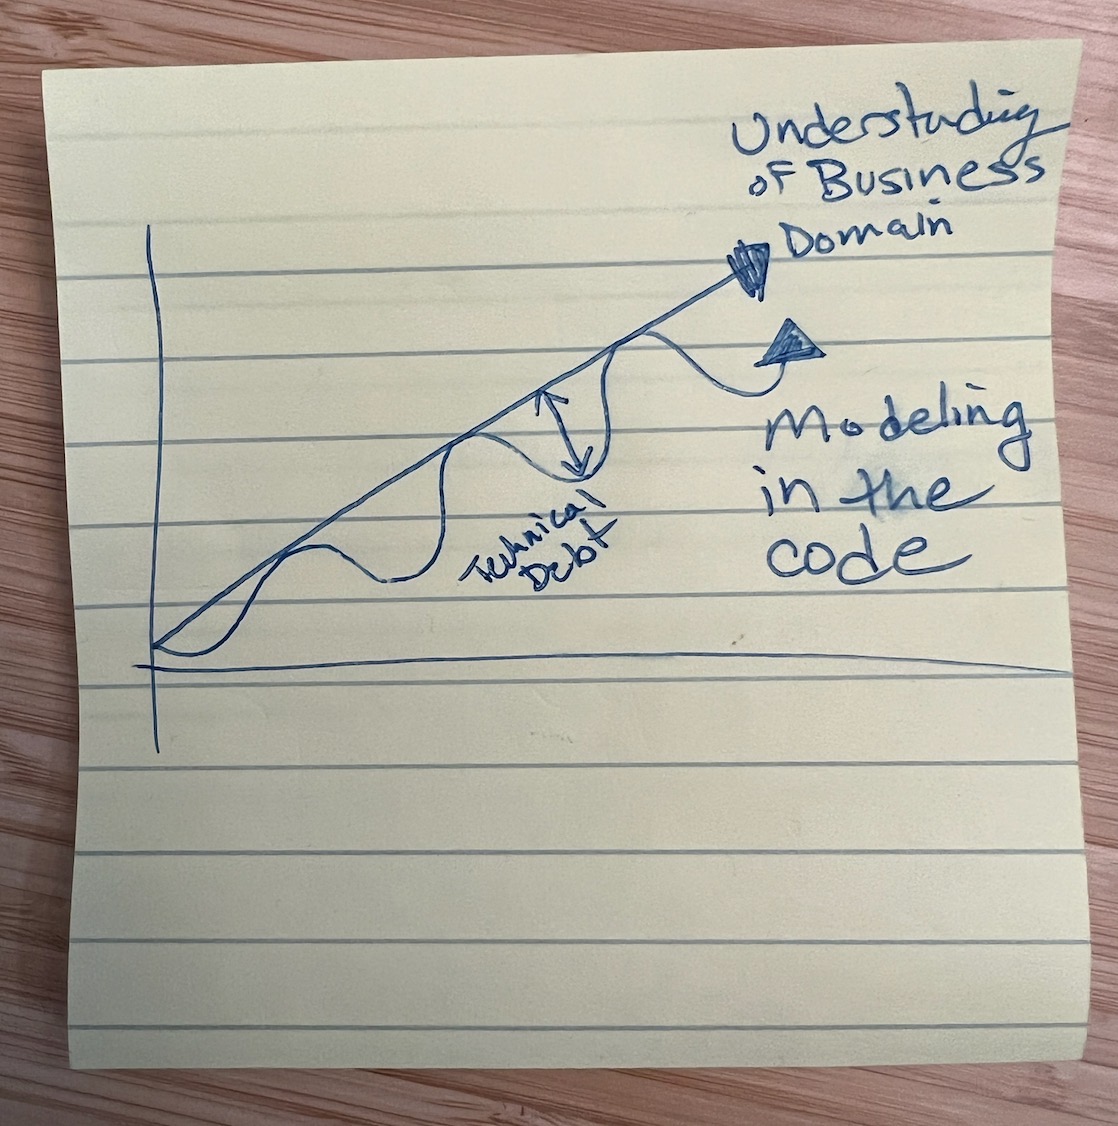 Understanding
of Business
Domain
Modeling
in the
code
Technical
Debt